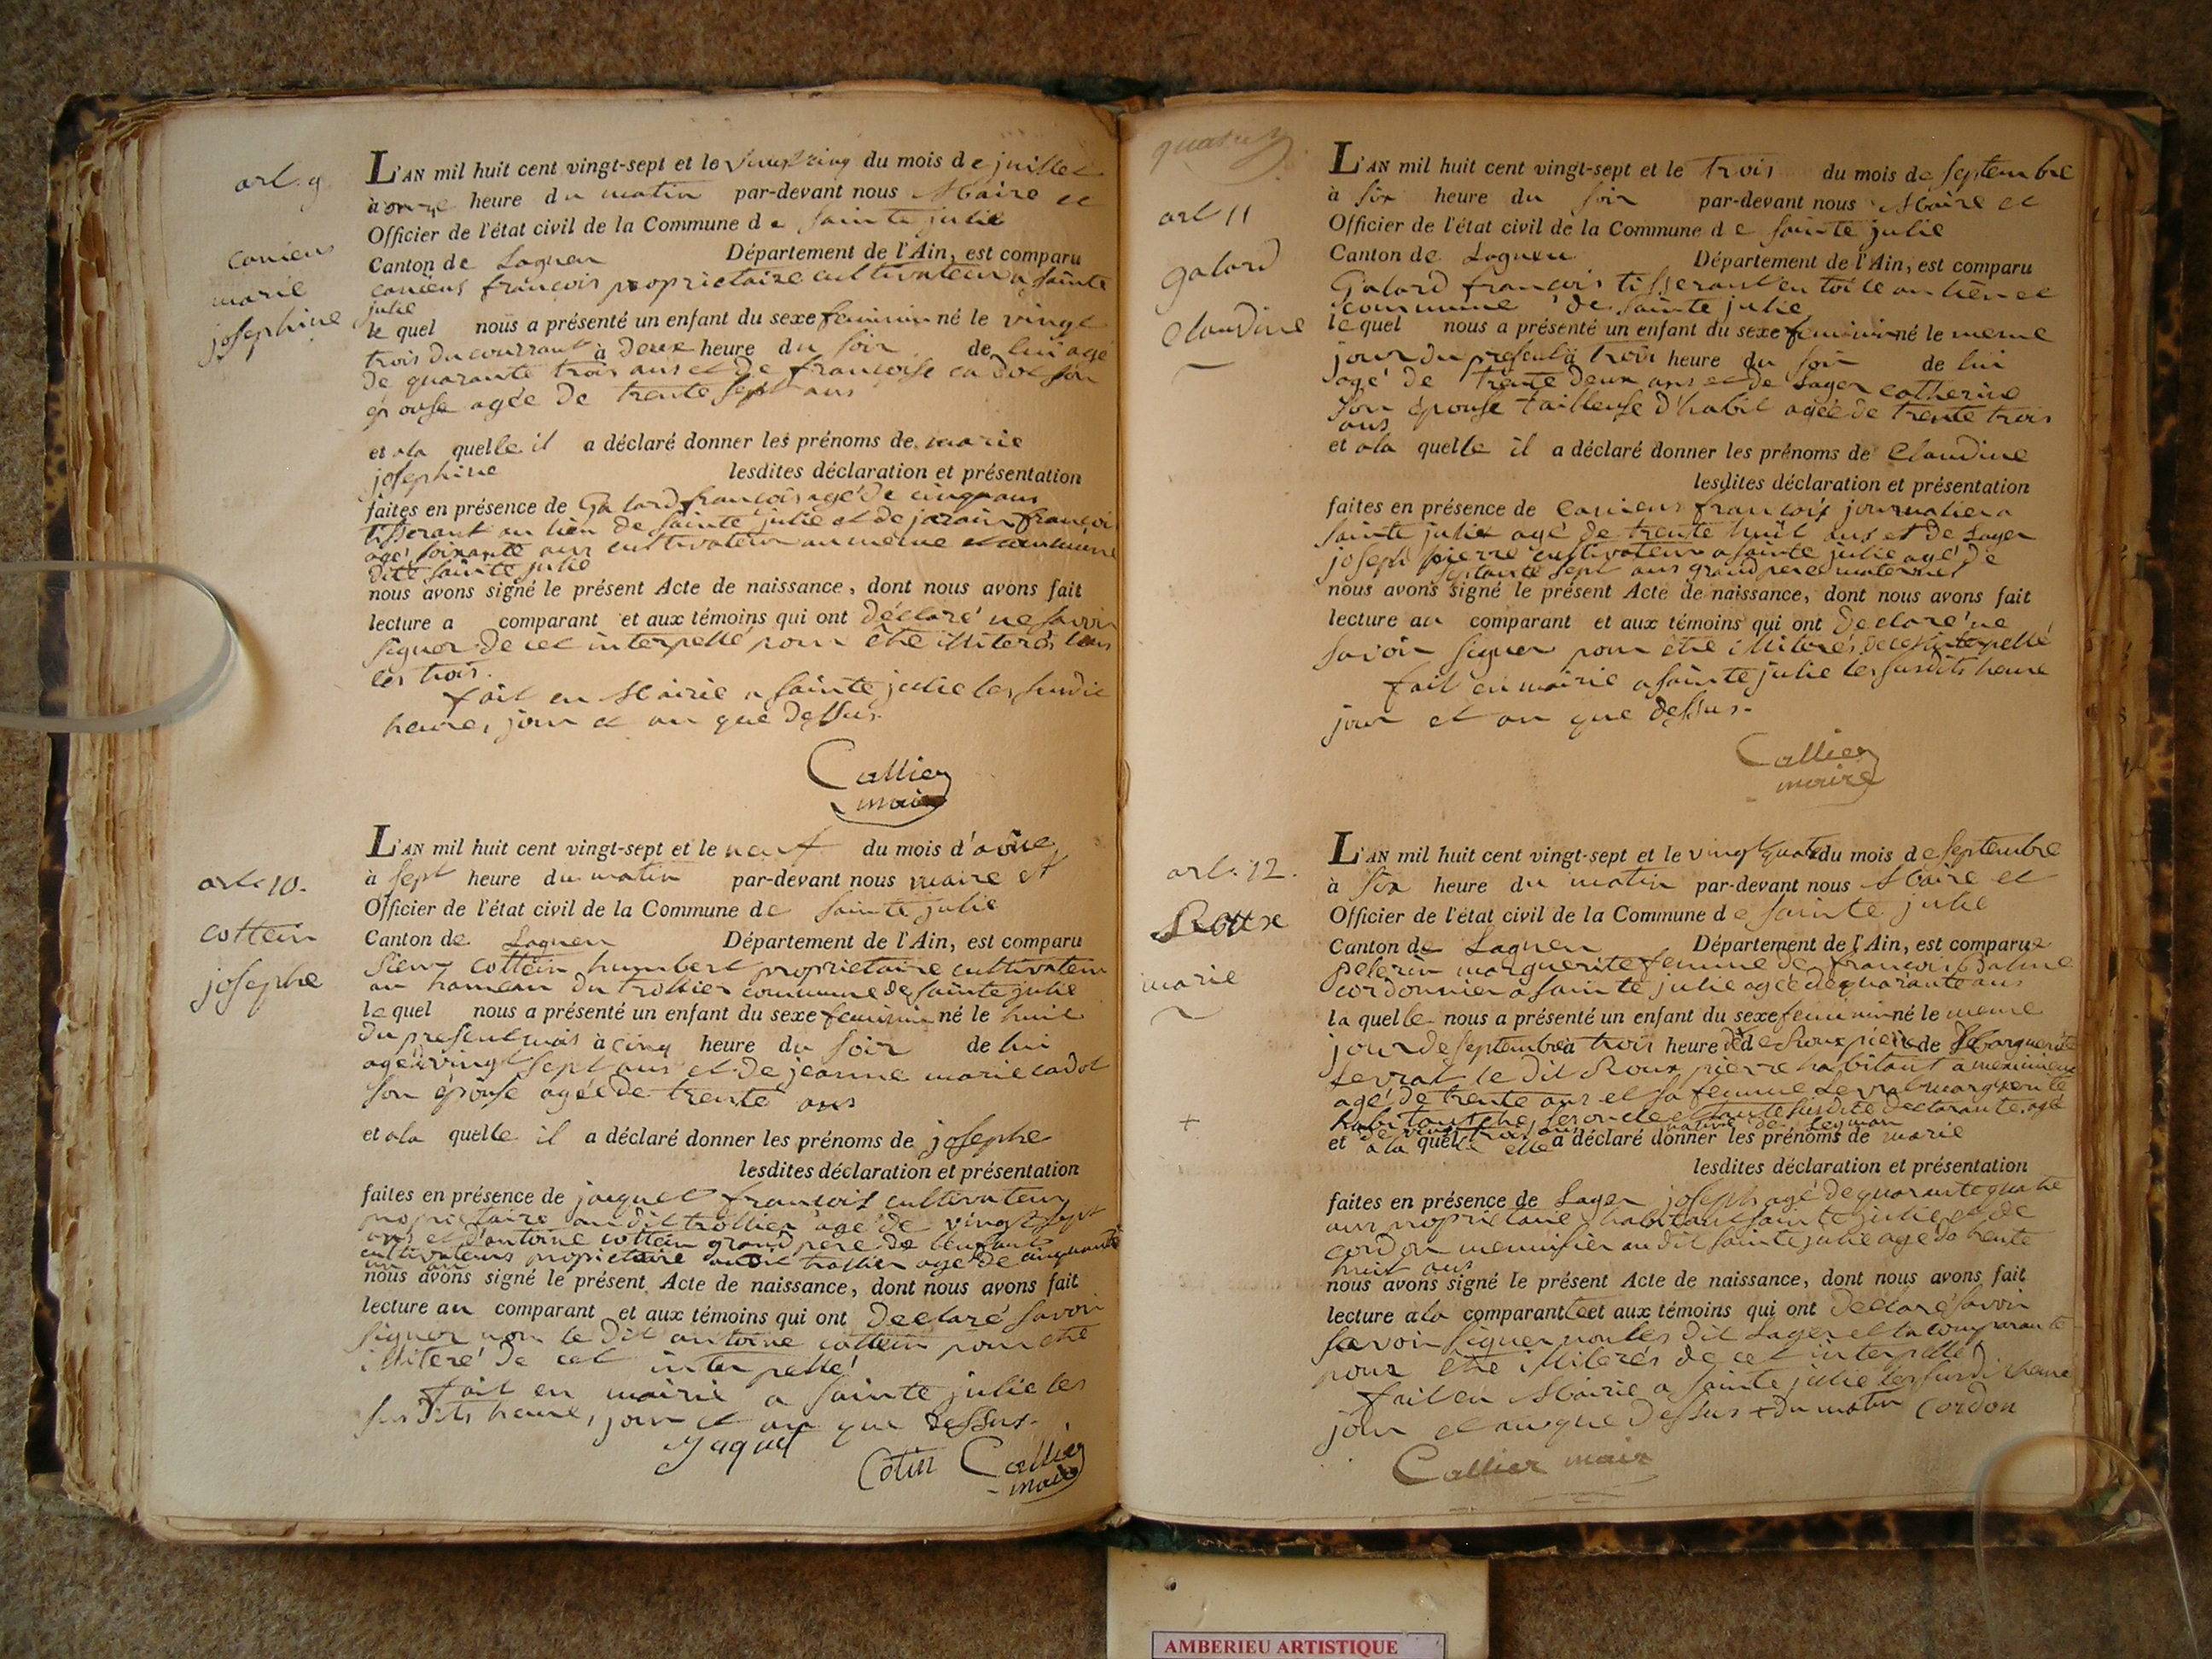 art. 9
caniens
marie
josephine
L'AN mil huit cent vingt-sept et le vingt cinq du mois de juillet
à onze heure du matin par-devant nous Maire et
Officier de l'état civil de la Commune de sainte julie
Canton de Lagneu Département de l'Ain, est comparu
caniens françois proprietaire cultivateur a sainte
julie
le quel nous a présenté un enfant du sexe feminin né le vingt
trois du courrant à deux heure du soir de lui agé
de quarante trois ans et de françoise cadot son
epouse agée de trente sept ans
et a la quelle il a déclaré donner les prénoms de marie
josephine lesdites déclaration et présentation
faites en présence de Galard françois agé de cinq ans
tisserant au lieu de sainte julie et de jarain françois
agé soixante ans cultivateur au meme et commune
dite sainte julie
nous avons signé le présent Acte de naissance, dont nous avons fait
lecture a comparant et aux témoins qui ont déclaré ne savoir
signer de cet interpellé pour être illiterés tous
les trois.
fait en Mairie a sainte julie les susdit
heure, jour et an que dessus.
Callier
maire
art. 10.
cottein
josephe
L'AN mil huit cent vingt-sept et le neuf du mois d'août
à sept heure du matin par-devant nous maire et
Officier de l'état civil de la Commune de sainte julie
Canton de Lagneu Département de l'Ain, est comparu
sieur cottein humbert proprietaire cultivateur
au hameau du trollier commune de sainte julie
le quel nous a présenté un enfant du sexe feminin né le huit
du present mois à cinq heure du soir de lui
agé vingt sept ans et de jeanne marie cadot
son épouse agée de trente ans
et a la quelle il a déclaré donner les prénoms de josephe
lesdites déclaration et présentation
faites en présence de jacquet françois cultivateur
proprietaire au dit trollier agé de vingt sept
ans et d'antoine cottein grand pere de l'enfant
cultivateurs propietaire au dit trollier agé de cinquante
un an
nous avons signé le présent Acte de naissance, dont nous avons fait
lecture au comparant et aux témoins qui ont declaré savoir
signer non le dit antoine cottein pour etre
illiteré de cet interpellé
fait en mairie a sainte julie les
susdits heure, jour et an que dessus.
Jaquet
Cotin Callier
maire
art 11
galard
claudine
L'AN mil huit cent vingt-sept et le trois du mois de septembre
à six heure du soir par-devant nous Maire et
Officier de l'état civil de la Commune de sainte julie
Canton de Lagneu Département de l'Ain, est comparu
Galard françois tisserant en toile au lieu et
commune de sainte julie
le quel nous a présenté un enfant du sexe feminin né le meme
jour du present à trois heure du soir de lui
agé de trente deux ans et de Lager catherine
son épouse tailleuse d'habit agée de trente trois
ans
et a la quelle il a déclaré donner les prénoms de Claudine
lesdites déclaration et présentation
faites en présence de Caniens françois journalier a
sainte julie agé de trente huit ans et de Lager
joseph pierre cultivateur a sainte julie agé de
septante sept ans grand pere maternel
nous avons signé le présent Acte de naissance, dont nous avons fait
lecture au comparant et aux témoins qui ont declaré ne
savoir signer pour être illiterés de cet interpellé
fait en mairie a sainte julie les susdits heure
jour et an que dessus.
Callier
maire
art. 12.
Roux
marie
L'AN mil huit cent vingt-sept et le vingt quatre du mois de septembre
à six heure du matin par-devant nous Maire et
Officier de l'état civil de la Commune de sainte julie
Canton de Lagneu Département de l'Ain, est comparue
pelerin marguerite femme de françois Balme
cordonnier a sainte julie agée de quarante ans
la quelle nous a présenté un enfant du sexe feminin né le meme
jour de septembre à trois heure de Roux pierre de Marguerite
Levrat le dit Roux pierre habitant a meximieux
agé de trente ans et sa femme Levrat marguerite
susdite declarante agée
et a la quelle elle a déclaré donner les prénoms de marie
lesdites déclaration et présentation
faites en présence de Lager joseph agé de quarante quatre
ans proprietaire habitant sainte julie et de
cordon menuisier au dit sainte julie agé de trente
huit ans
nous avons signé le présent Acte de naissance, dont nous avons fait
lecture a la comparante et aux témoins qui ont declaré savoir
savoir signer non les dit Lager et la comparante
pour etre illiterés de cet interpellé
fait en Mairie a sainte julie les susdit heure
jour et an que dessus + du matin Cordon
Callier mair
AMBERIEU ARTISTIQUE